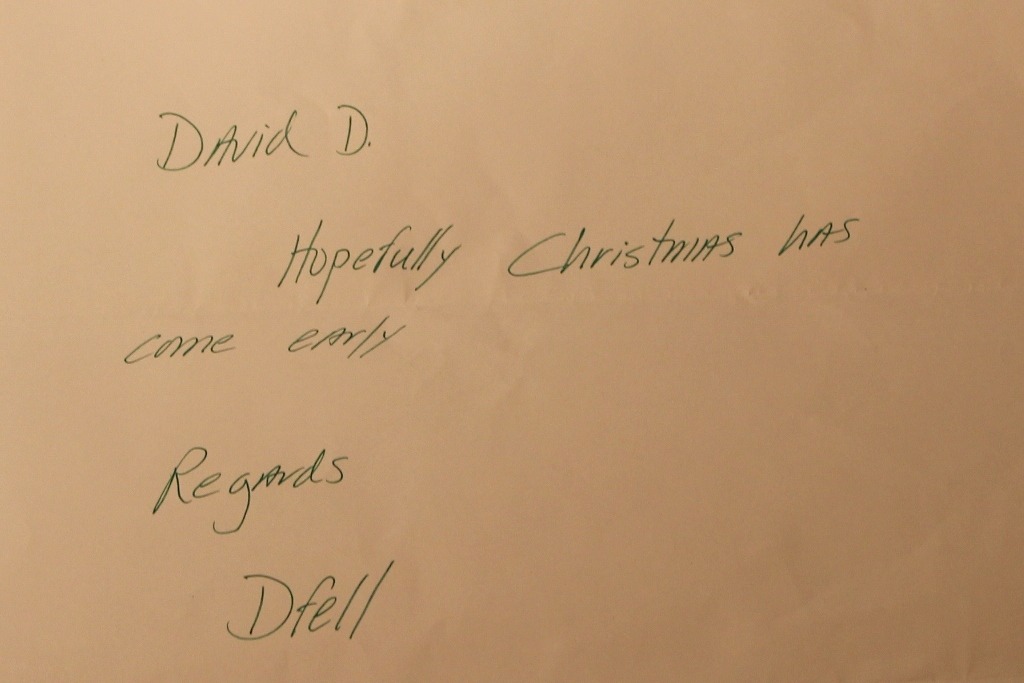 David D.
Hopefully Christmas has
come early
Regards
Dfell